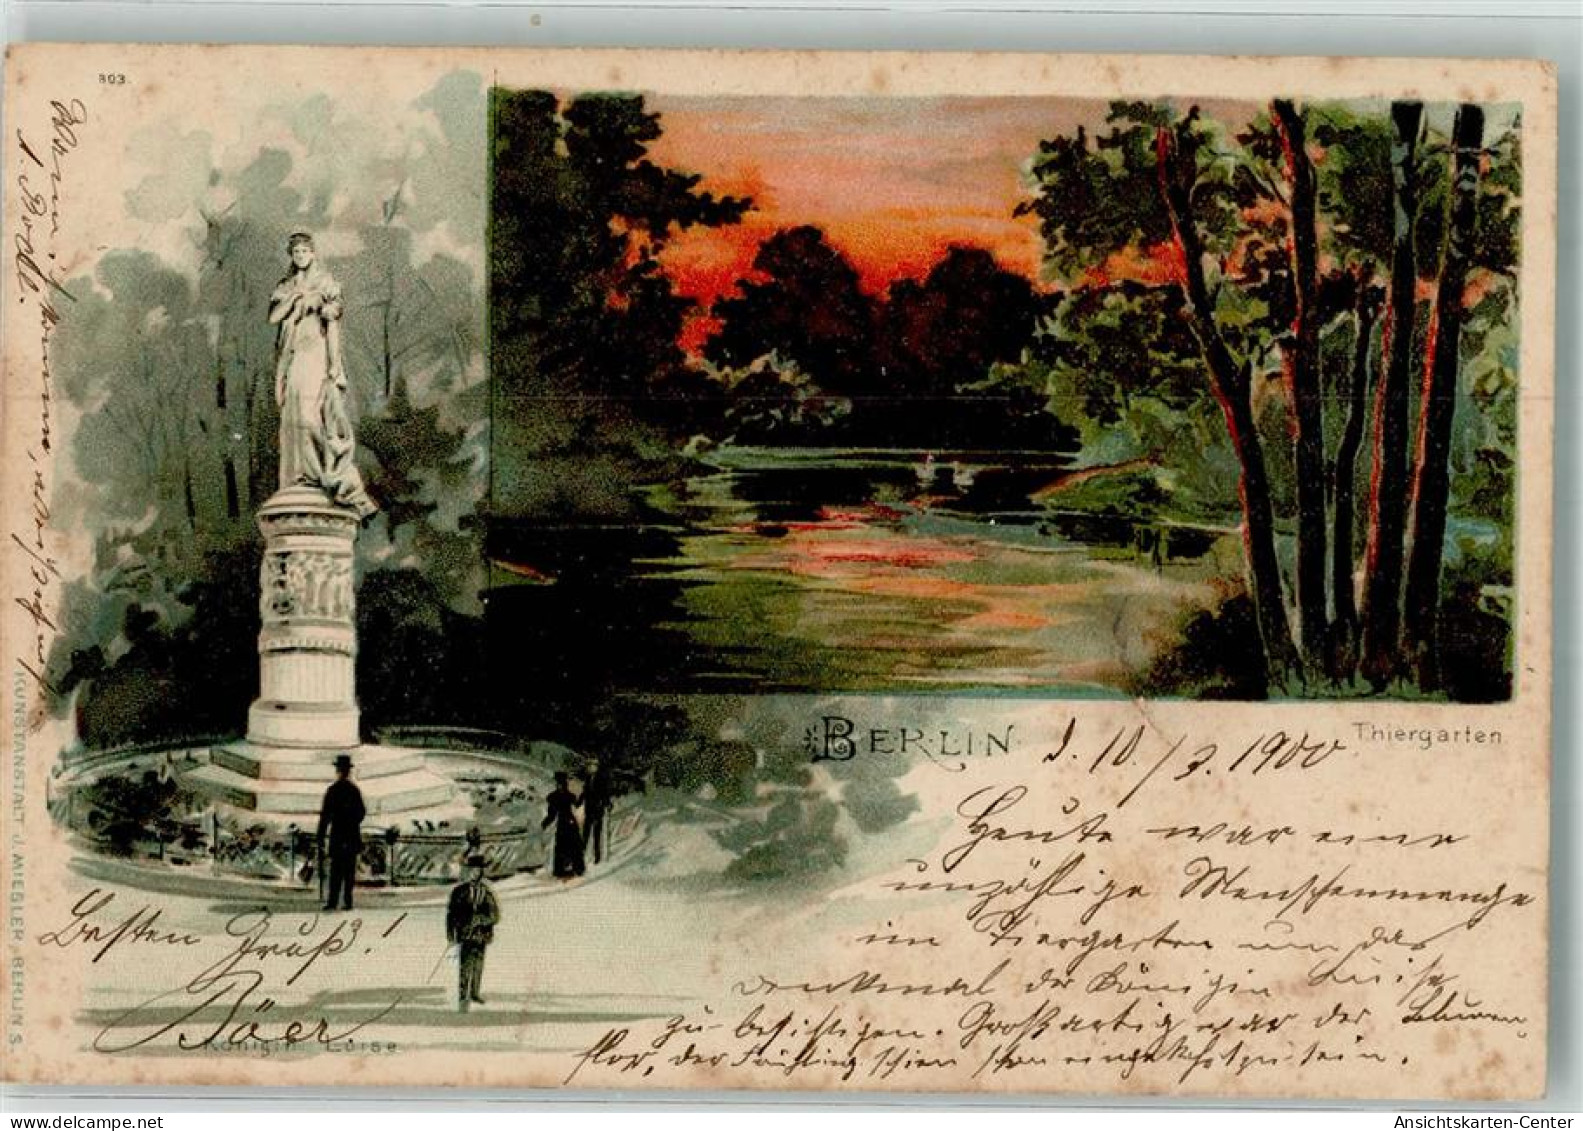 803.
BERLIN
Thiergarten
d. 10./3. 1900
Heute war eine
unzählige Menschenmenge
im Tiergarten um das
Denkmal der Königin Luise
zu besichtigen. Großartig war der Blumen-
flor, der Frühling schien schon eingekehrt zu sein.
Besten Gruß!
Königin Luise
KUNSTANSTALT J. MIESLER, BERLIN S.
Ansichtskarten-Center